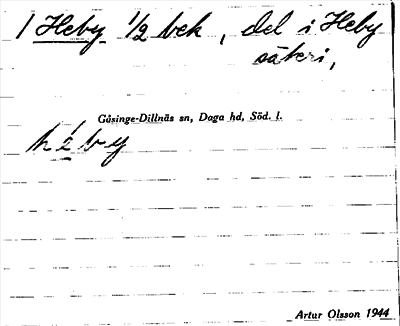 1 Heby 1/2 bek, del i Heby
säteri,
Gåsinge-Dillnäs sn, Daga hd, Söd. l.
hé̱by
Artur Olsson 1944